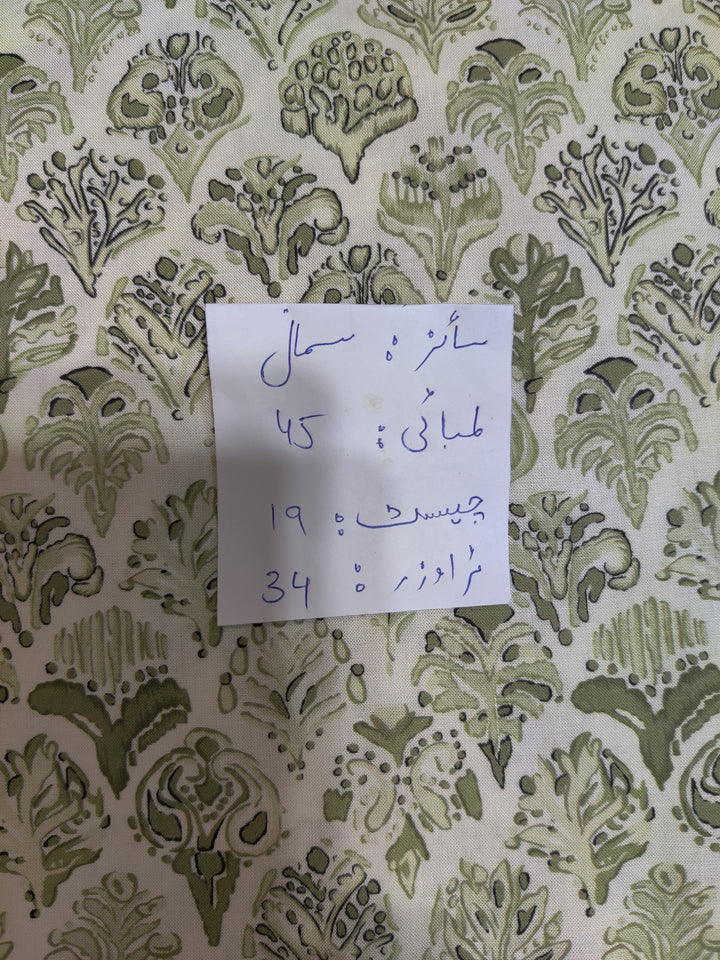 سائز : سمال
لمبائی : 45
چیسٹ : 19
ٹراوزر : 34